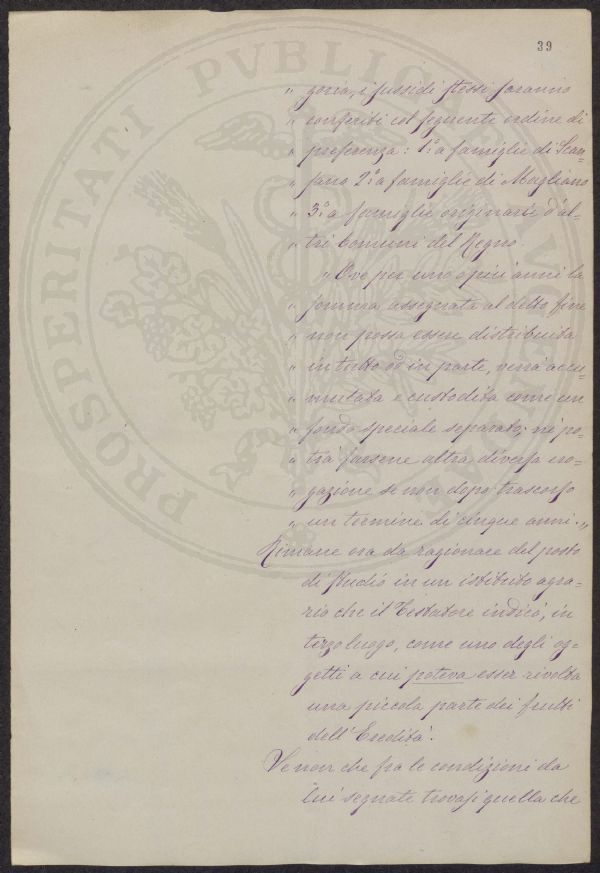 39
„ goria, i sussidi stessi saranno
„ conferiti col seguente ordine di
„ preferenza: 1.° a famiglie di Scan=
„ sano 2.° a famiglie di Magliano
„ 3.° a famiglie originarie d'al=
„ tri Comuni del Regno.
„ Ove per uno o più anni la
„ somma assegnata al detto fine
„ non possa essere distribuita
„ in tutto od in parte, verrà accu=
„ mulata e custodita come un
„ fondo speciale separato; nè po=
„ trà farsene altra diversa ero=
„ gazione se non dopo trascorso
„ un termine di cinque anni. „
Rimane ora da ragionare del posto
di studio in un istituto agra=
rio che il Testatore indicò, in
terzo luogo, come uno degli og=
getti a cui poteva esser rivolta
una piccola parte dei frutti
dell'Eredità.
Se non che fra le condizioni da
lui segnate trovasi quella che
PROSPERITATI PVBLICAE AVGENDAE